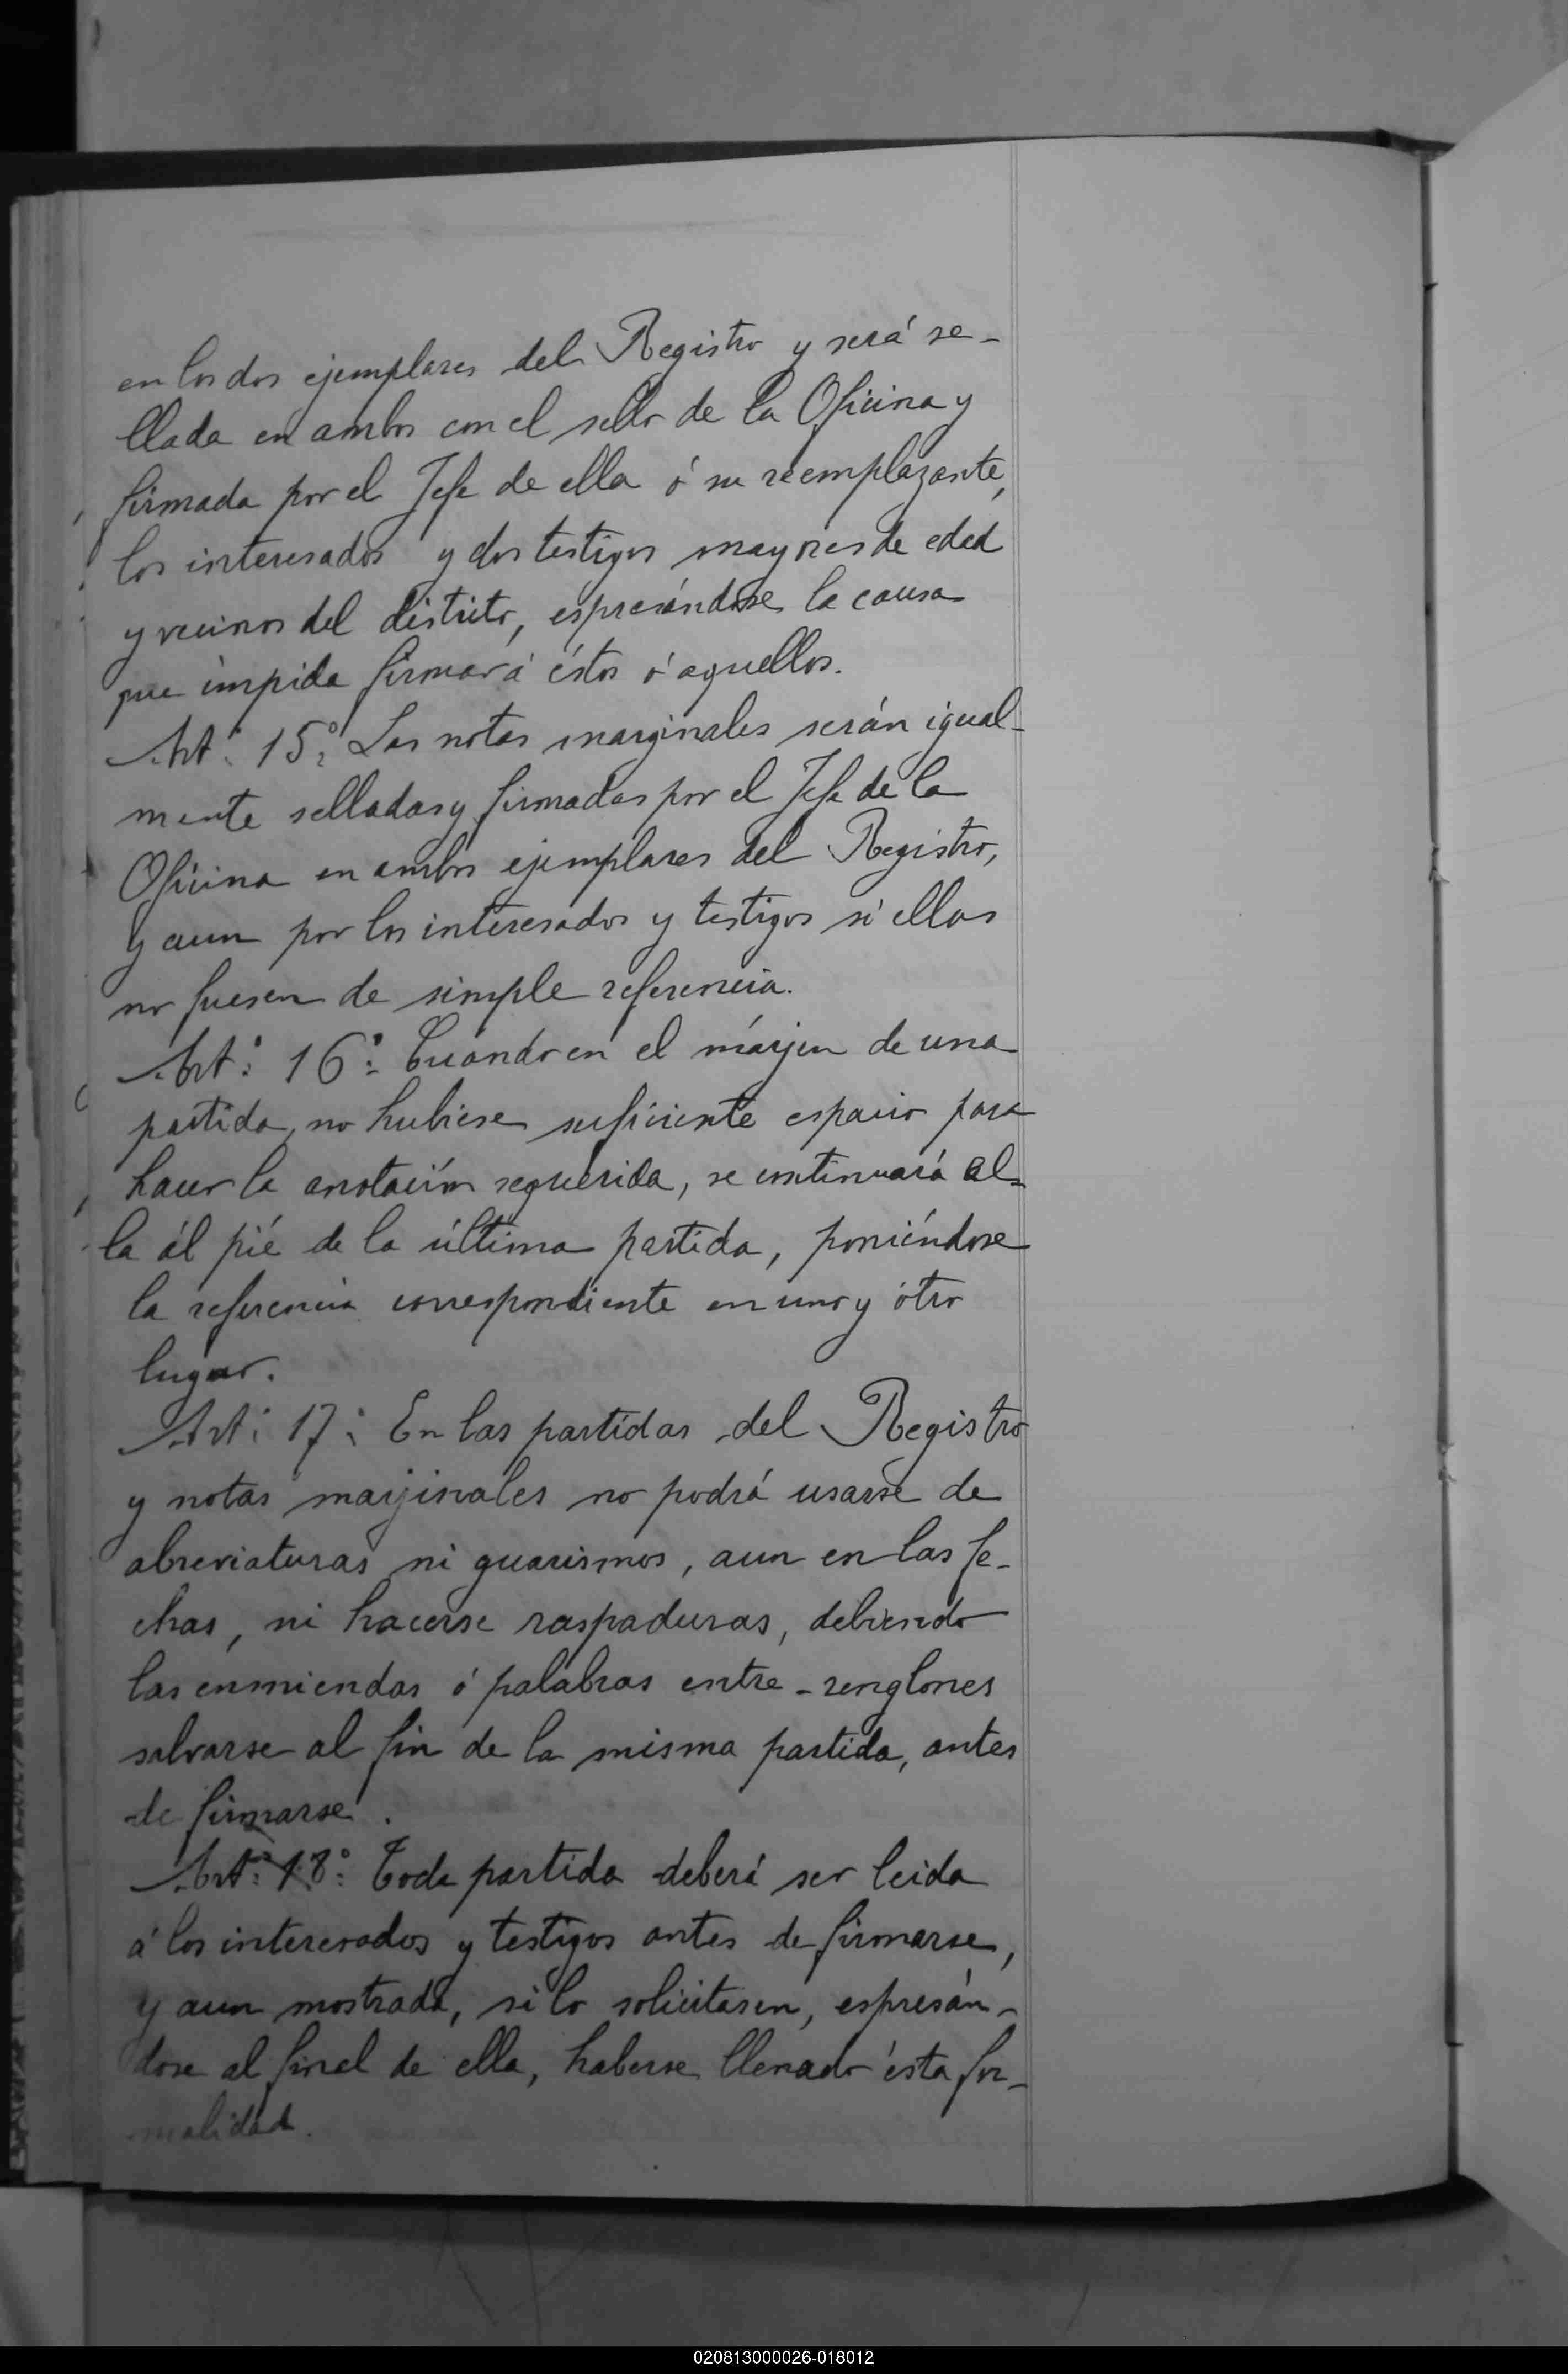 en los dos ejemplares del Registro y será se-
llada en ambos con el sello de la Oficina y
firmada por el Jefe de ella ó su reemplazante,
los interesados y dos testigos mayores de edad
y vecinos del distrito, espresándose la causa
que impida firmar á éstos ó aquellos.
Art.º 15.º Las notas marginales serán igual-
mente selladas y firmadas por el Jefe de la
Oficina en ambos ejemplares del Registro,
y aun por los interesados y testigos si ellas
no fuesen de simple referencia.
Art.º 16.º Cuando en el márjen de una
partida, no hubiese suficiente espacio para
hacer la anotación requerida, se continuará al-
la ál pié de la última partida, poniéndose
la referencia correspondiente en uno y ótro
lugar.
Art.º 17.º En las partidas del Registro
y notas marjinales no podrá usarse de
abreviaturas ni guarismos, aun en las fe-
chas, ni hacerse raspaduras, debiendo
las enmiendas ó palabras entre-renglones
salvarse al fin de la misma partida, antes
de firmarse.
Art.º 18.º Toda partida deberá ser leida
á los interesados y testigos antes de firmarse,
y aun mostrada, si lo solicitasen, espresán-
dose al final de ella, haberse llenado ésta for-
malidad.
020813000026-018012